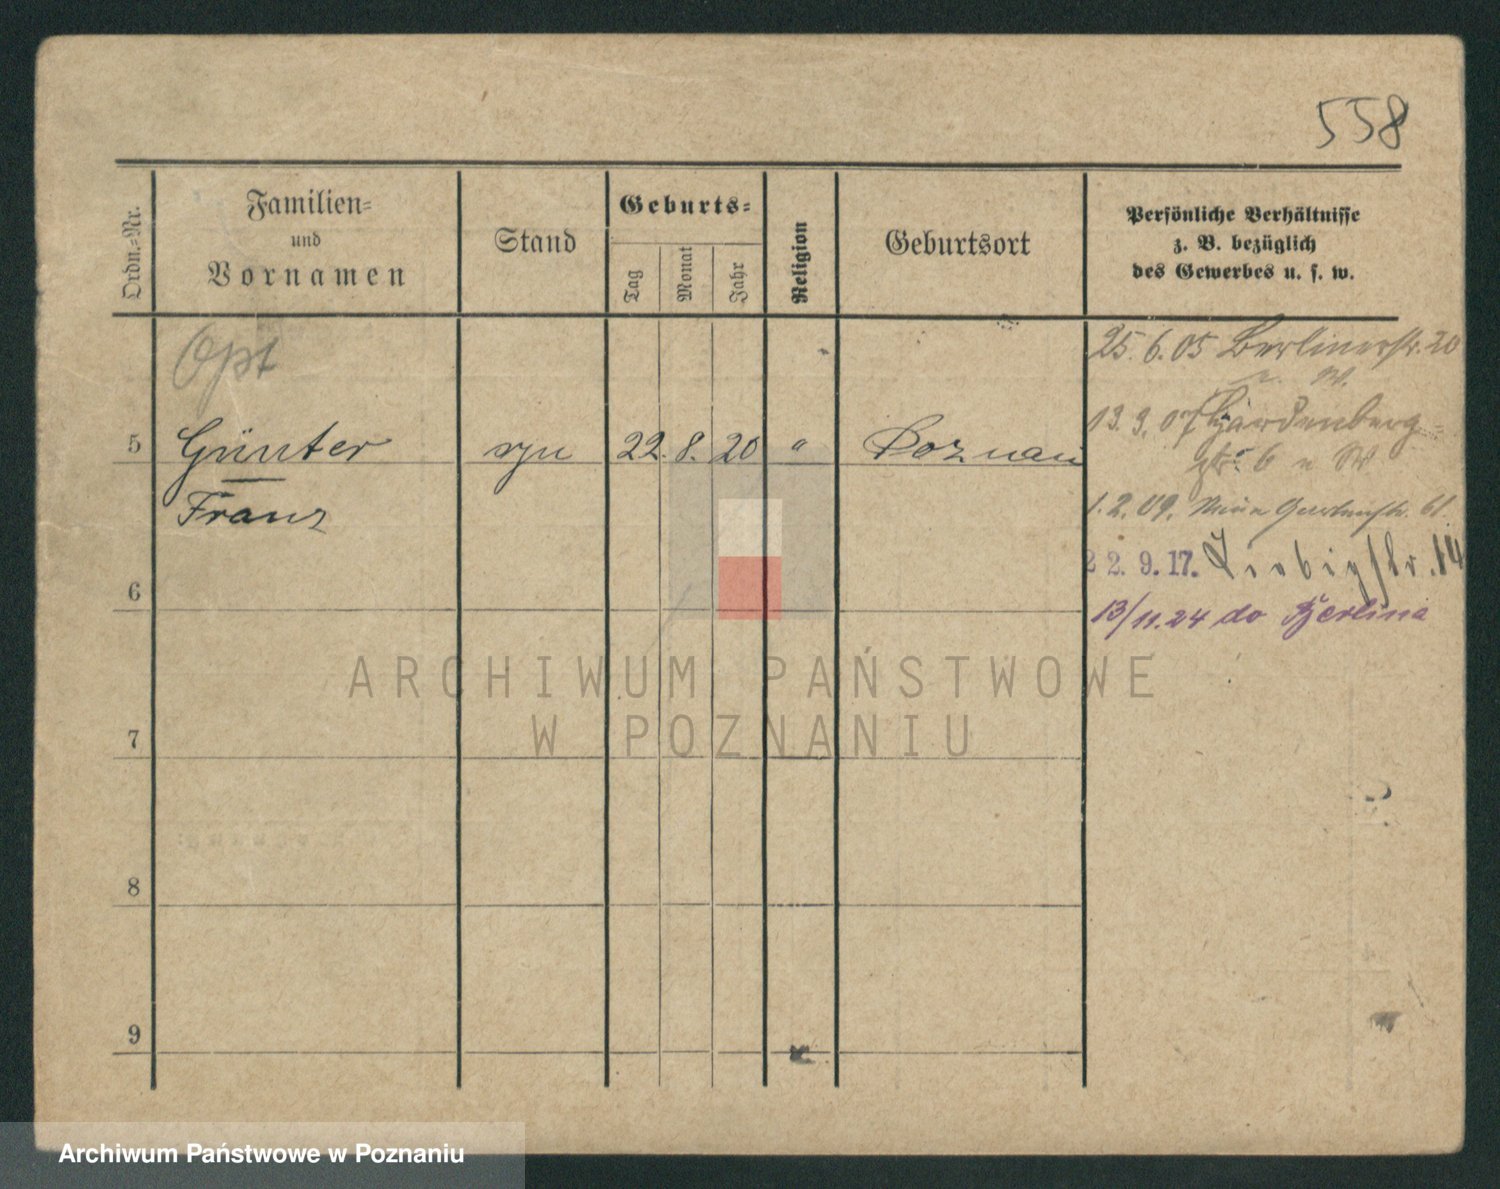 558
Ordn.-Nr.
Familien-
und
Vornamen
Stand
Geburts-
Tag
Monat
Jahr
Religion
Geburtsort
Persönliche Verhältnisse
z. B. bezüglich
des Gewerbes u. s. w.
Opt
25. 6. 05 Berlinerstr. 20
W.
13. 9. 07 Hardenberg-
str. 6 u W
5 Günter syn 22. 8. 20 " Poznań
Franz
1. 2. 09. Neue Gartenstr. 61.
22. 9. 17. Liebigstr. 14
13/11.24 do Berlina
6
7
8
9
ARCHIWUM PAŃSTWOWE
W POZNANIU
Archiwum Państwowe w Poznaniu